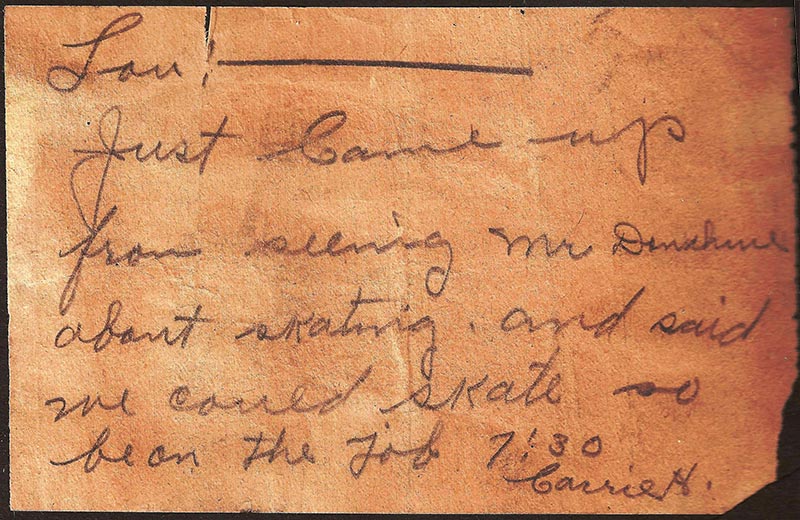 Lou! ———
Just Came up
from seeing Mr Donahue
about skating. and said
we could skate so
be on the job 7:30
Carrie H.